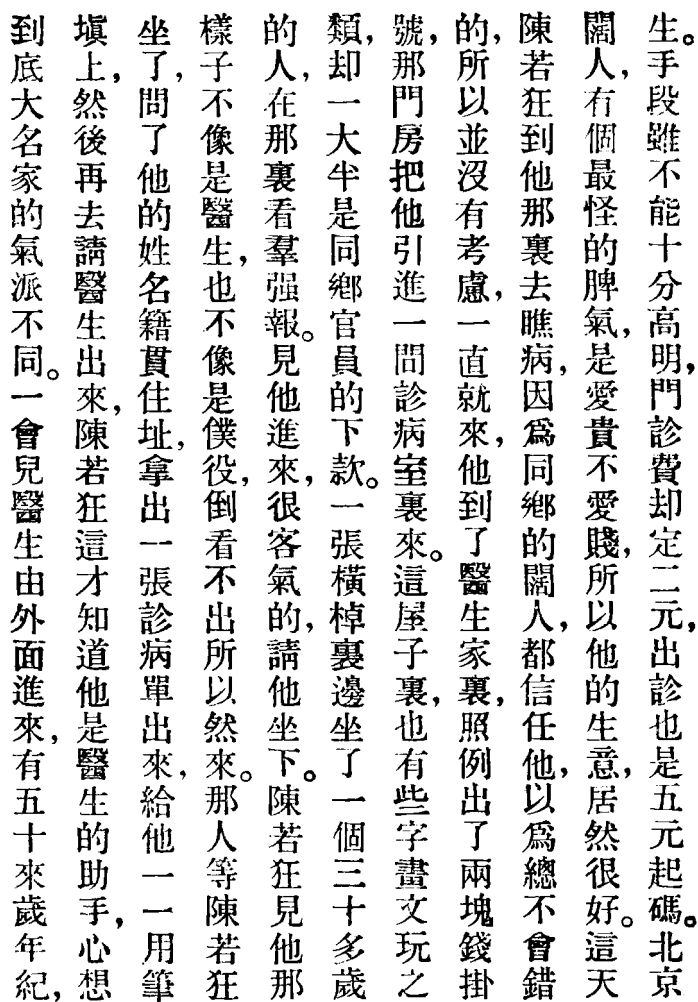 生。手段雖不能十分高明，門診費却定二元，出診也是五元起碼。北京
闊人，有個最怪的脾氣，是愛貴不愛賤，所以他的生意，居然很好。這天
陳若狂到他那裏去瞧病，因爲同鄉的闊人，都信任他，以爲總不會錯
的，所以並沒有考慮，一直就來，他到了醫生家裏，照例出了兩塊錢掛
號，那門房把他引進一間診病室裏來。這屋子裏，也有些字畫文玩之
類，却一大半是同鄉官員的下款。一張橫棹裏邊坐了一個三十多歲
的人，在那裏看羣强報。見他進來，很客氣的，請他坐下。陳若狂見他那
樣子不像是醫生，也不像是僕役，倒看不出所以然來。那人等陳若狂
坐了，問了他的姓名籍貫住址，拿出一張診病單出來，給他一一用筆
塡上，然後再去請醫生出來，陳若狂這才知道他是醫生的助手，心想
到底大名家的氣派不同。一會兒醫生由外面進來，有五十來歲年紀，